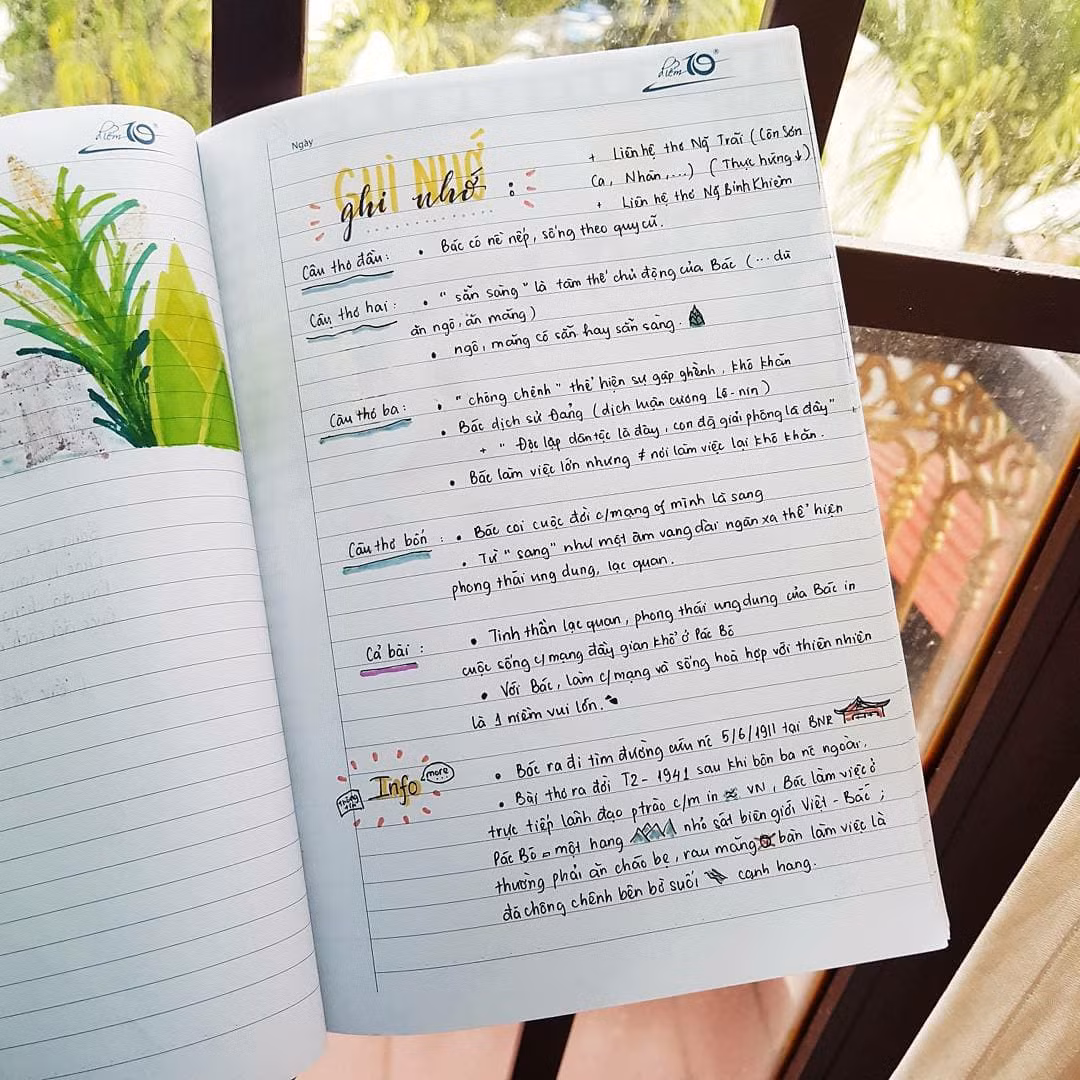 điểm 10
điểm 10
Ngày
GHI NHỚ
ghi nhớ :
+ Liên hệ thơ Ng~ Trãi (Côn Sơn
Ca, Nhàn,...) (Thực hứng↓)
+ Liên hệ thơ Ng~ Bỉnh Khiêm
Câu thơ đầu: • Bác có nề nếp, sống theo quy cũ.
Câu thơ hai: • "sẵn sàng" là tâm thế chủ động của Bác (... dù
ăn ngô, ăn măng)
• ngô, măng có sẵn hay sẵn sàng.
Câu thơ ba: • "chông chênh" thể hiện sự gập ghềnh, khó khăn
• Bác dịch sử Đảng (dịch luận cương Lê-nin)
+ "Độc lập dân tộc là đây, con đg~ giải phóng là đây"
• Bác làm việc lớn nhưng ≠ nơi làm việc lại khó khăn.
Câu thơ bốn: • Bác coi cuộc đời c/mạng of mình là sang
• Từ "sang" như một âm vang dài ngân xa thể hiện
phong thái ung dung, lạc quan.
Cả bài: • Tinh thần lạc quan, phong thái ung dung của Bác in
cuộc sống c/mạng đầy gian khổ ở Pác Bó
• Với Bác, làm c/mạng và sống hoà hợp với thiên nhiên
là 1 niềm vui lớn.
Info
more
thông tin
• Bác ra đi tìm đường cứu nc 5/6/1911 tại BNR
• Bài thơ ra đời T2-1941 sau khi bôn ba nc ngoài,
trực tiếp lãnh đạo ptrào c/m in VN, Bác làm việc ở
Pác Bó = một hang nhỏ sát biên giới Việt - Bắc;
thường phải ăn cháo bẹ, rau măng bàn làm việc là
đá chông chênh bên bờ suối cạnh hang.